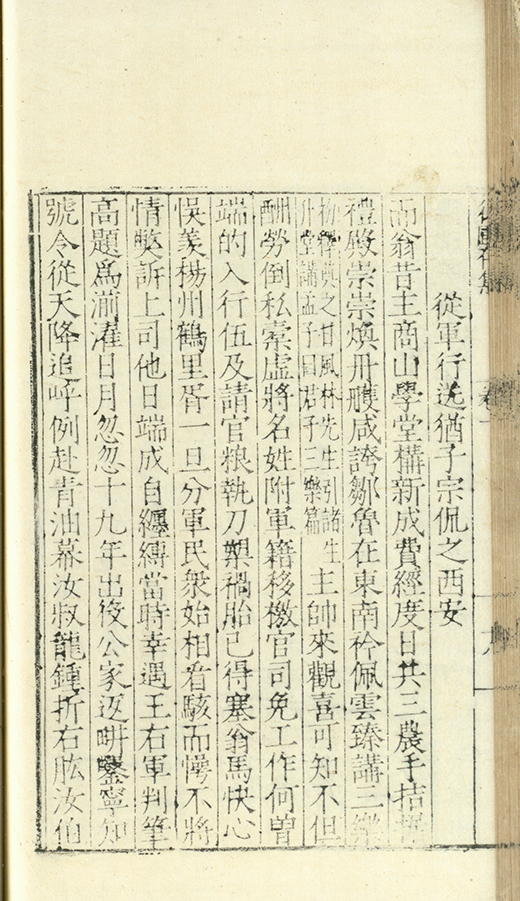 卷一
從軍行送猶子宗侃之西安
而翁昔主商山學堂構新成費經度日共三農手拮
禮殿崇崇煥丹雘咸誇鄒魯在東南衿佩雲臻講三樂
之甘風林先生引諸生
升堂講孟子曰君子三樂篇
主帥來觀喜可知不但
酬勞倒私橐虛將名姓附軍籍移檄官司免工作何曾
端的入行伍及請官粮執刀槊禍胎已得塞翁馬快心
悞羨楊州鶴里胥一旦分軍民衆始相看駭而愕不將
情獘訴上司他日端成自纏縛當時幸遇王右軍判筆
高題爲湔濯日月忽忽十九年出役公家返耕鑿寧知
號令從天降追呼例赴青油幕汝叔龍鍾折右肱汝伯